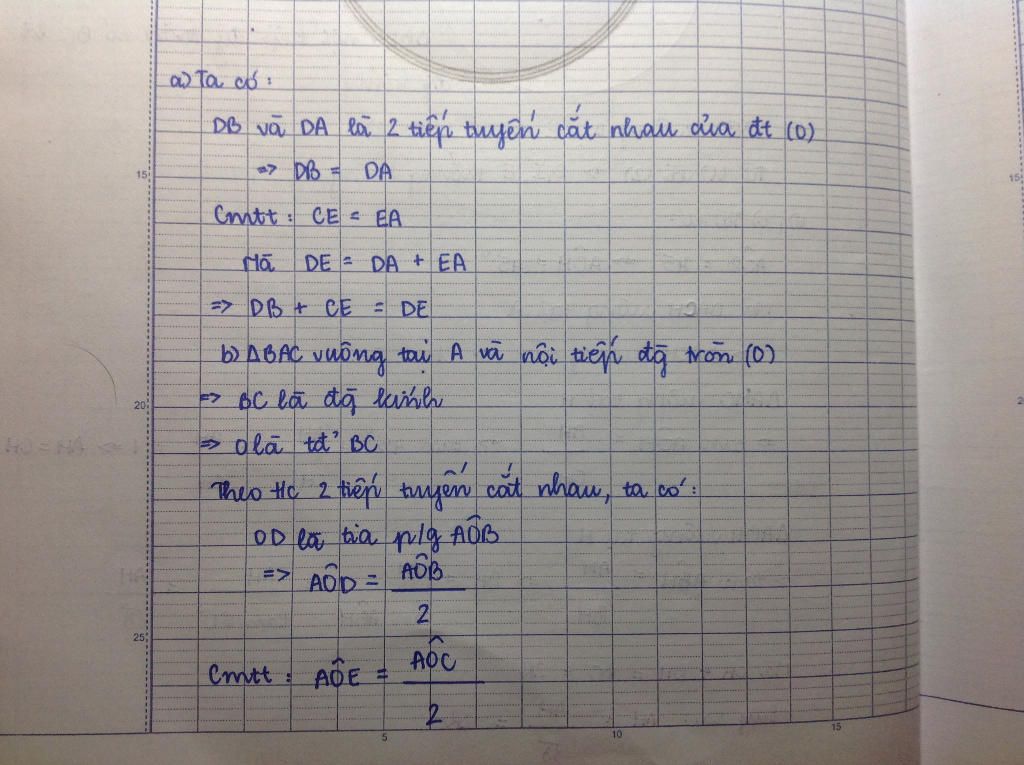 a) Ta có:
DB và DA là 2 tiếp tuyến cắt nhau của đt (O)
=> DB = DA
Cmtt: CE = EA
Mà DE = DA + EA
=> DB + CE = DE
15
b) ΔBAC vuông tại A và nội tiếp đg tròn (O)
=> BC là đg kính
20
=> O là tđ' BC
Theo t/c 2 tiếp tuyến cắt nhau, ta có:
OD là tia p/g AÔB
=> AÔD = AÔB / 2
25
Cmtt: AÔE = AÔC / 2
5 10 15